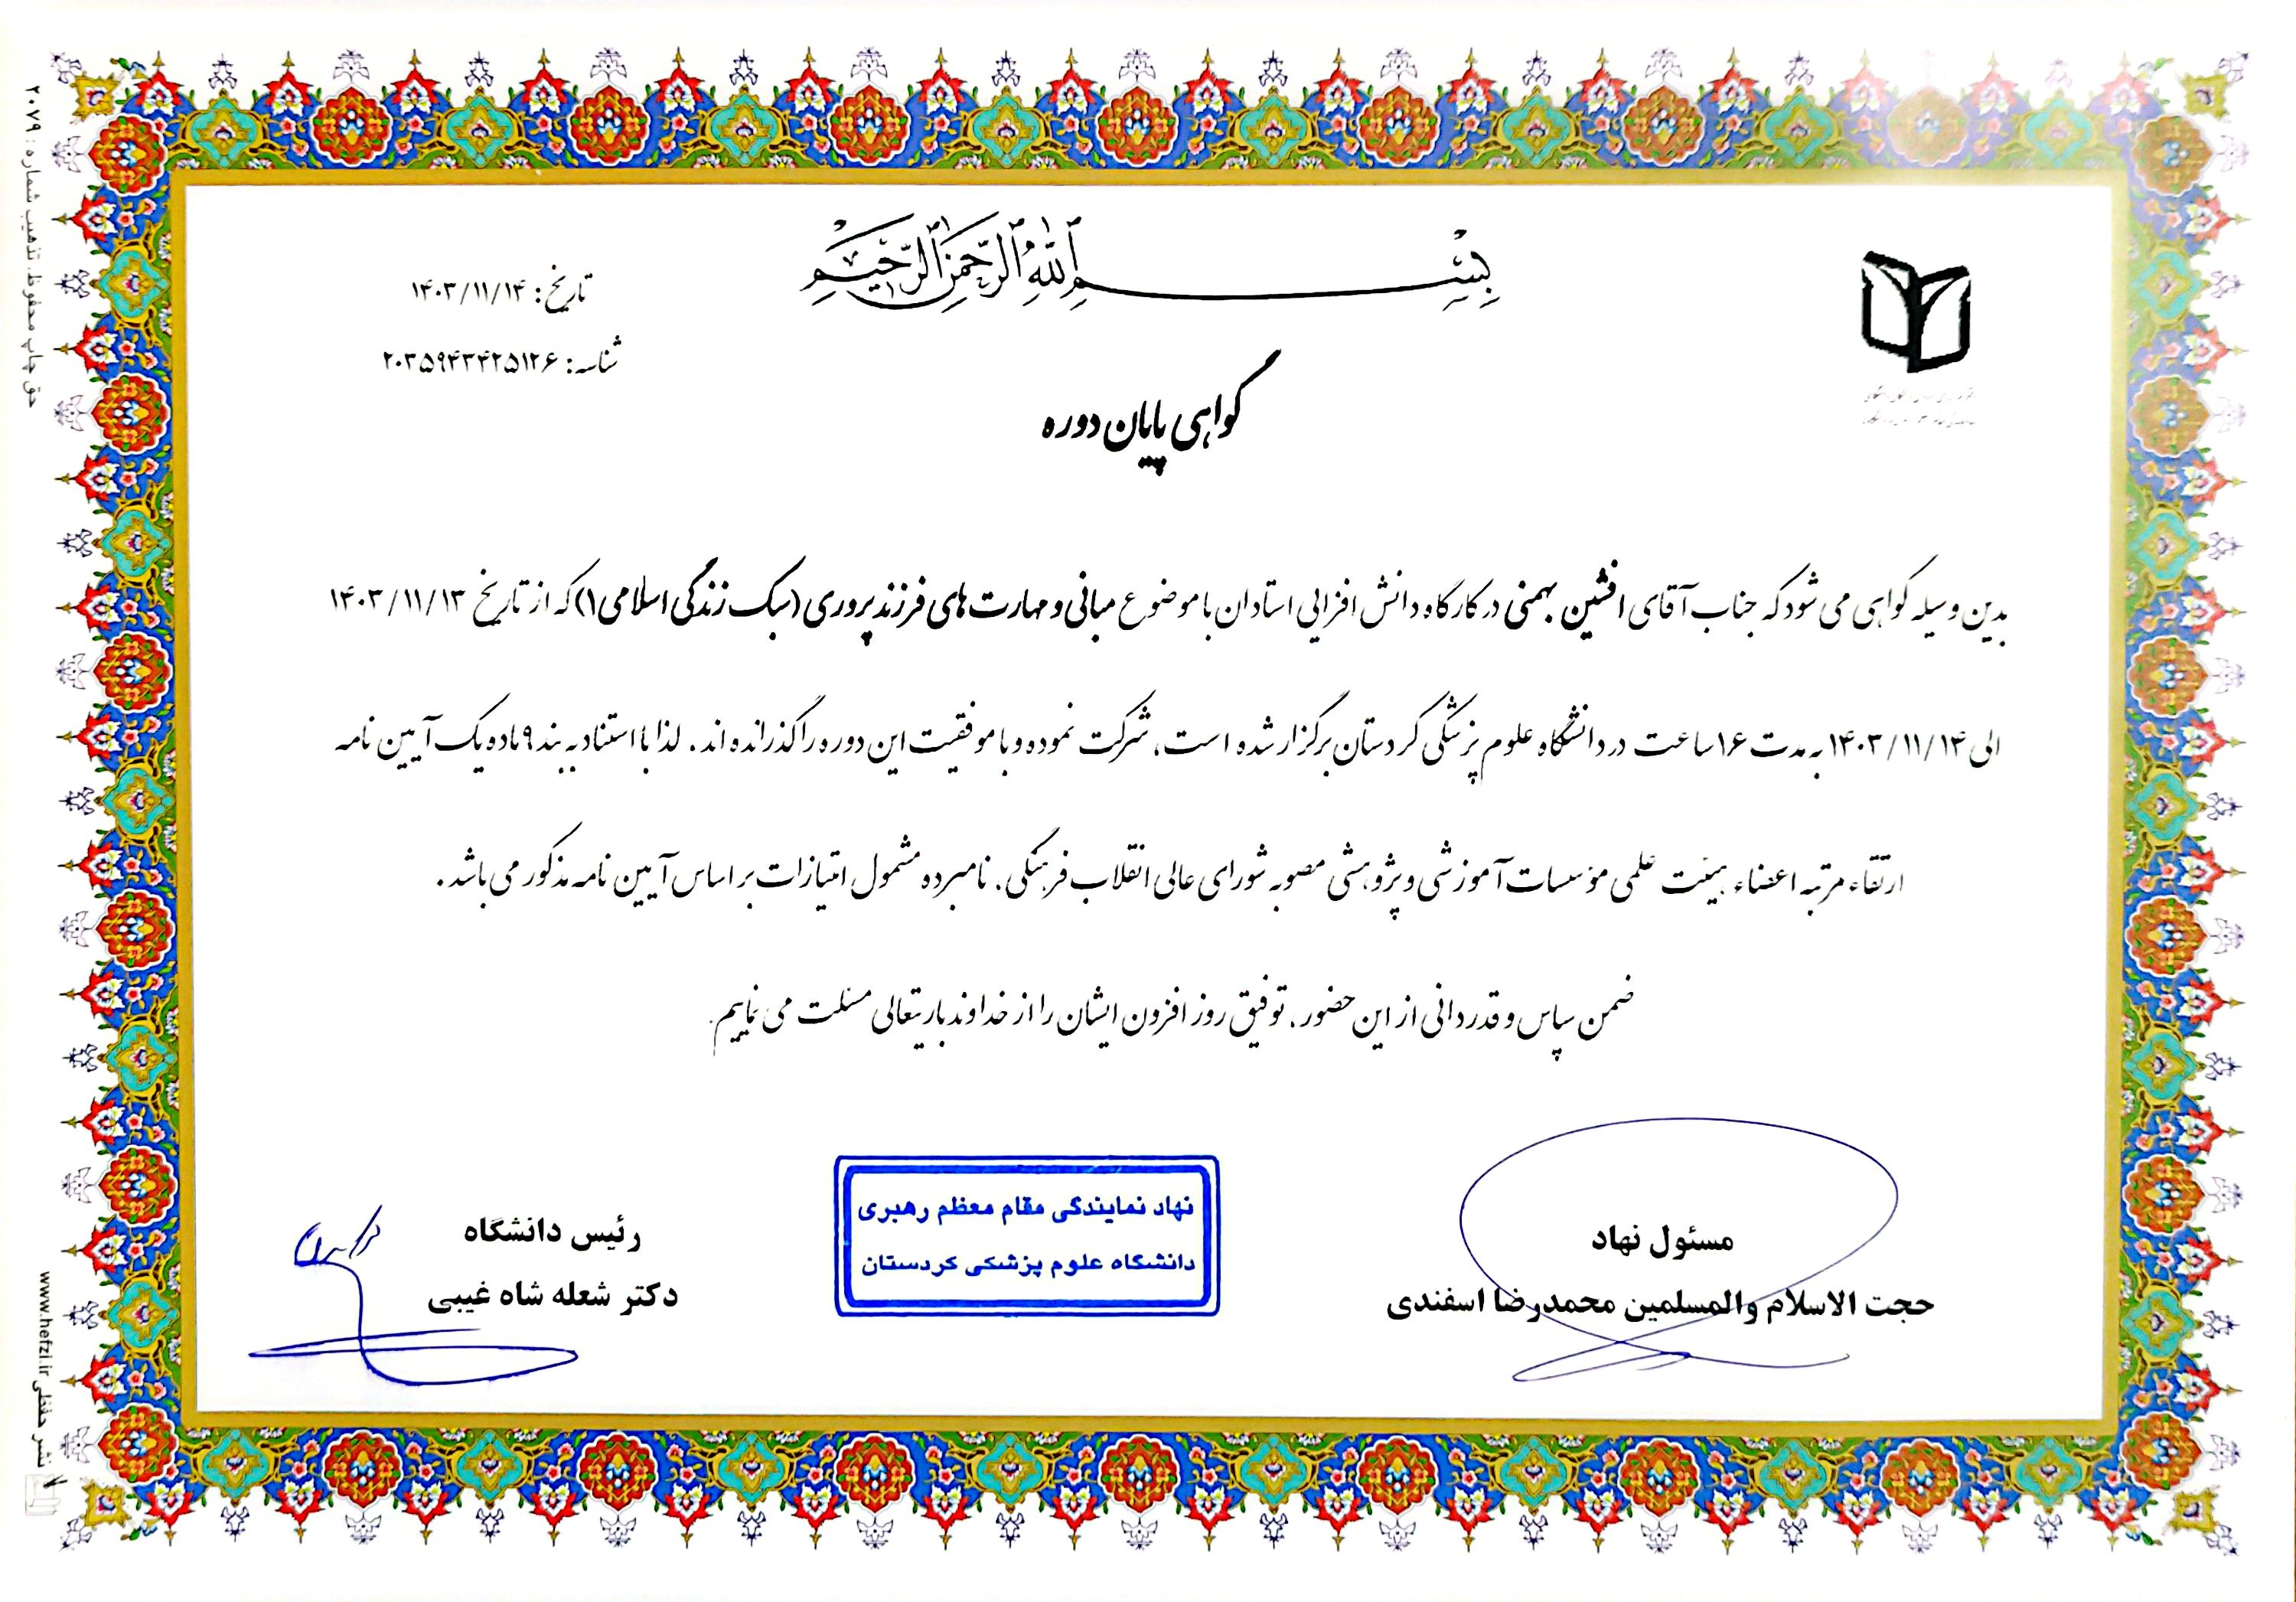 بِسْمِ اللهِ الرَّحْمنِ الرَّحيمِ
تاریخ: ۱۴۰۳/۱۱/۱۴
شناسه: ۲۰۳۵۹۴۳۴۲۵۱۲۶
گواهی پایان دوره
بدین وسیله گواهی می شود که جناب آقای افشین بهمنی در کارگاه دانش افزایی استادان با موضوع مبانی و مهارت های فرزندپروری (سبک زندگی اسلامی۱) که از تاریخ ۱۴۰۳/۱۱/۱۳
الی ۱۴۰۳/۱۱/۱۴ به مدت ۱۶ ساعت در دانشگاه علوم پزشکی کردستان برگزار شده است، شرکت نموده و با موفقیت این دوره را گذرانده اند. لذا با استناد به بند ۹ ماده یک آیین نامه
ارتقاء مرتبه اعضاء هیئت علمی مؤسسات آموزشی و پژوهشی مصوبه شورای عالی انقلاب فرهنگی، نامبرده مشمول امتیازات بر اساس آیین نامه مذکور می باشد.
ضمن سپاس و قدردانی از این حضور، توفیق روز افزون ایشان را از خداوند باریتعالی مسئلت می نماییم.
مسئول نهاد
حجت الاسلام والمسلمین محمدرضا اسفندی
نهاد نمایندگی مقام معظم رهبری
دانشگاه علوم پزشکی کردستان
رئیس دانشگاه
دکتر شعله شاه غیبی
حق چاپ محفوظ. تذهیب شماره: ۲۰۷۹
نشر حفظی www.hefzi.ir